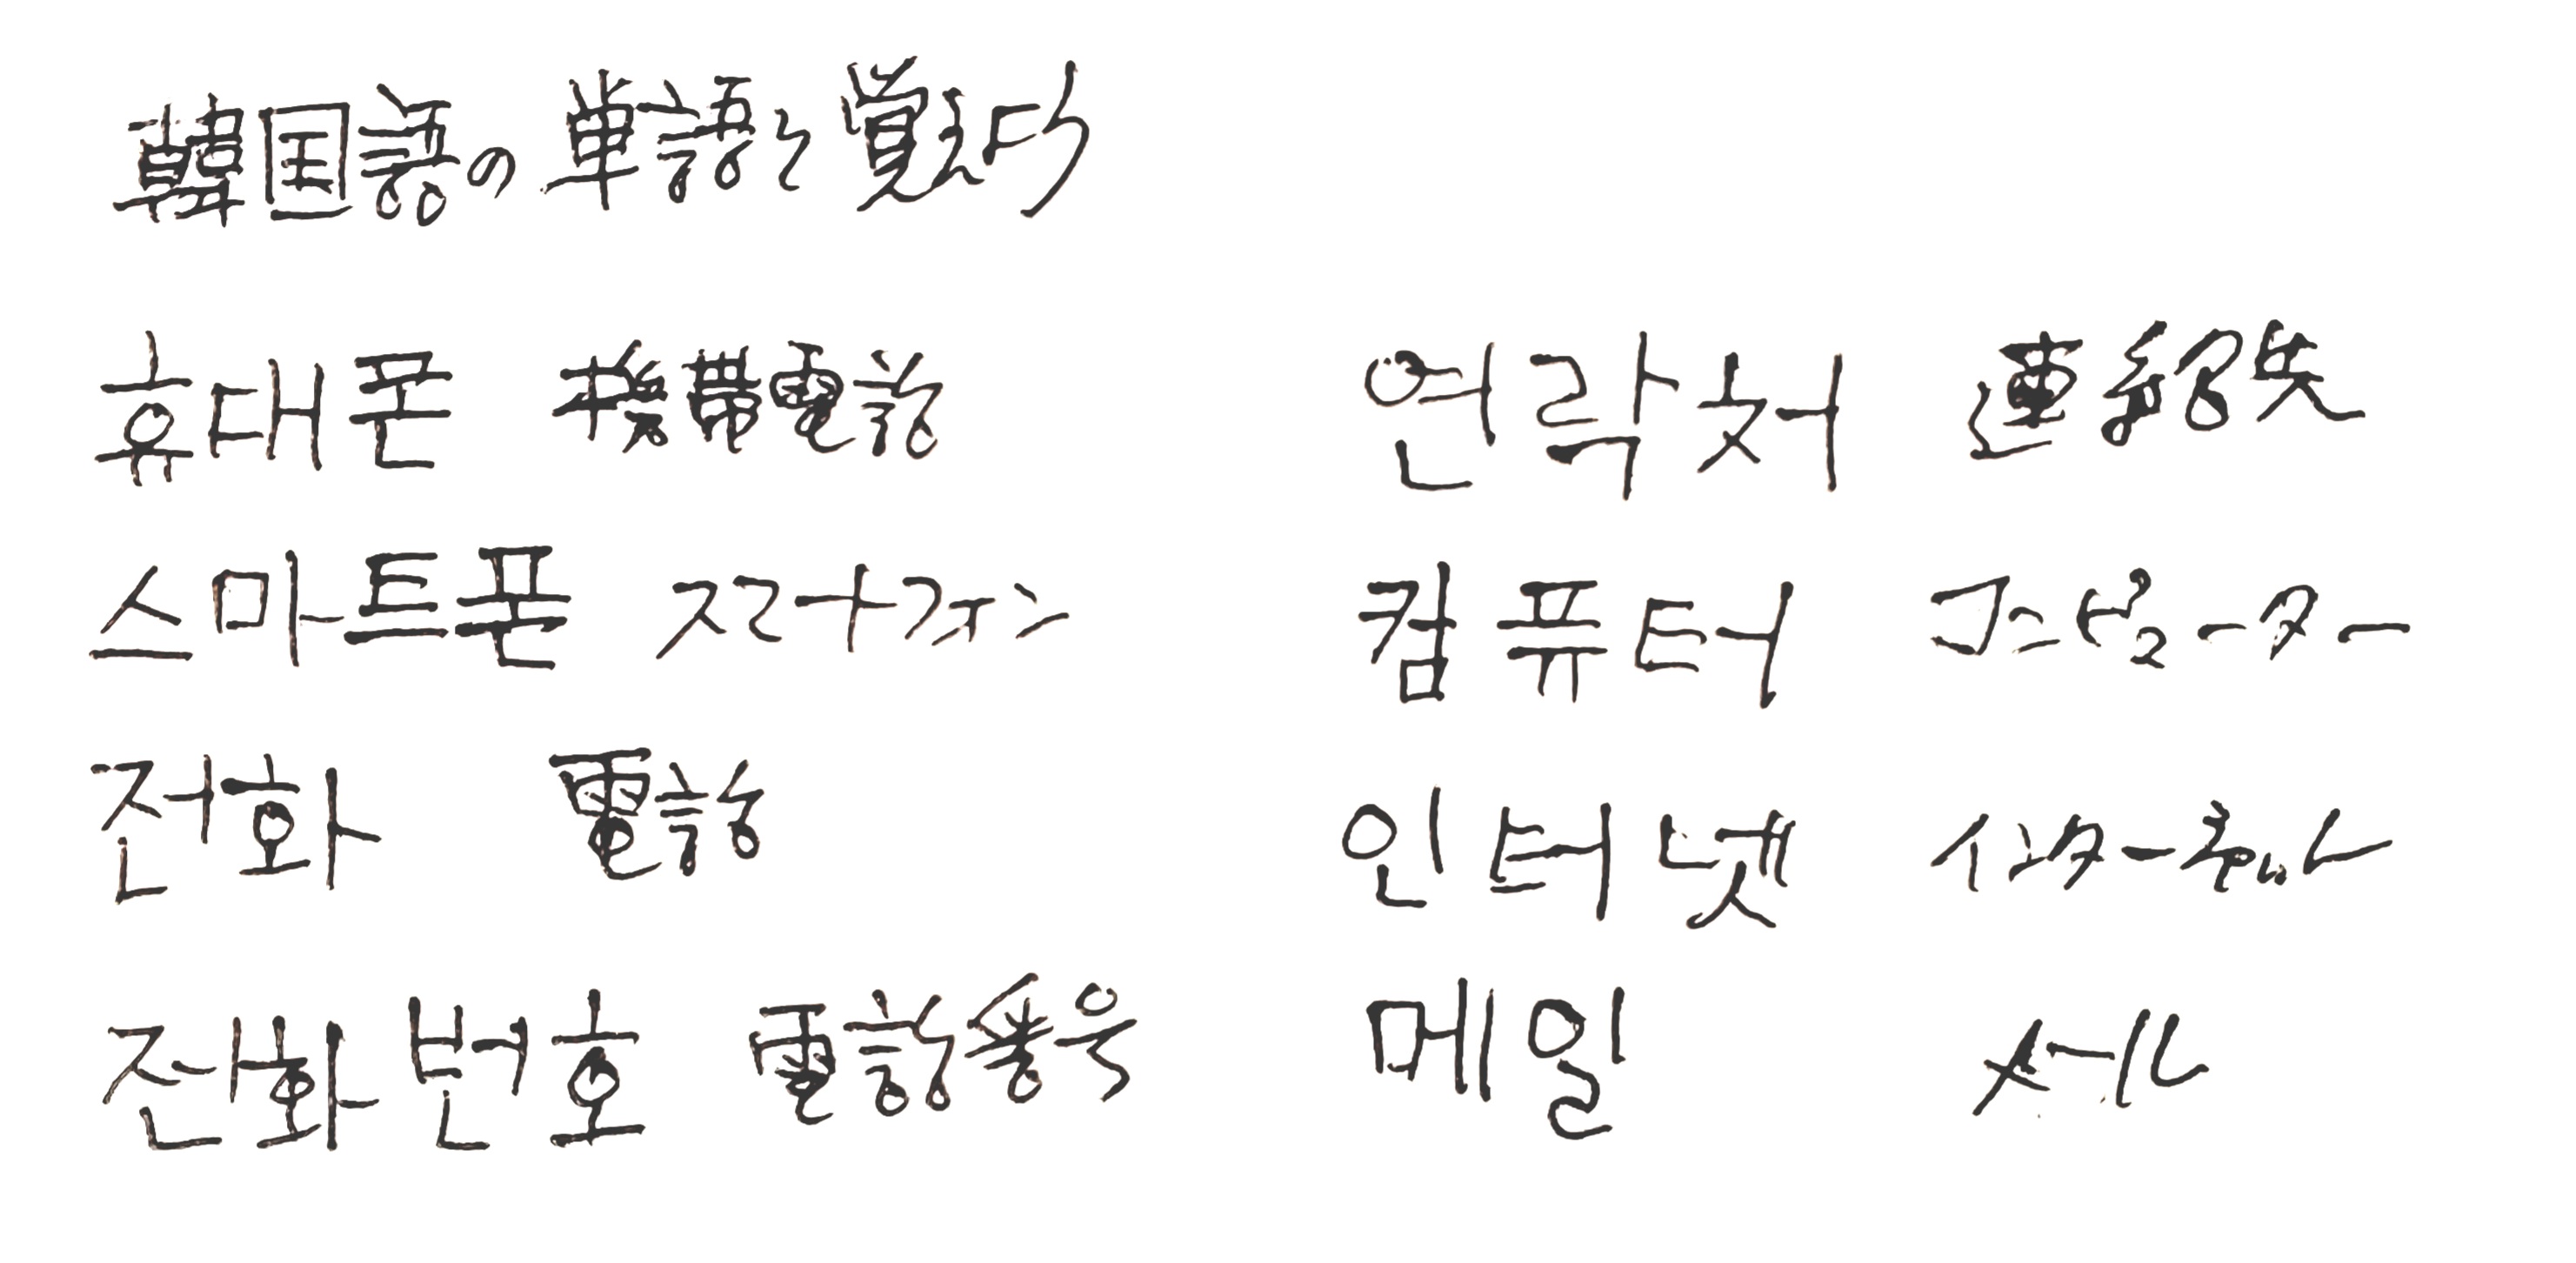 韓国語の単語を覚えよう
휴대폰 携帯電話
스마트폰 スマートフォン
전화 電話
전화번호 電話番号
연락처 連絡先
컴퓨터 コンピューター
인터넷 インターネット
메일 メール